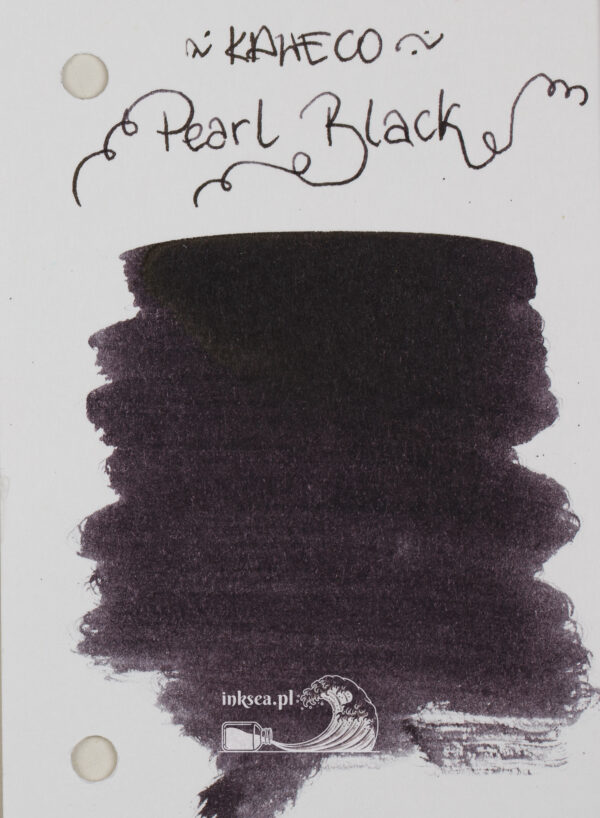 ~ KAWECO ~
Pearl Black
inksea.pl